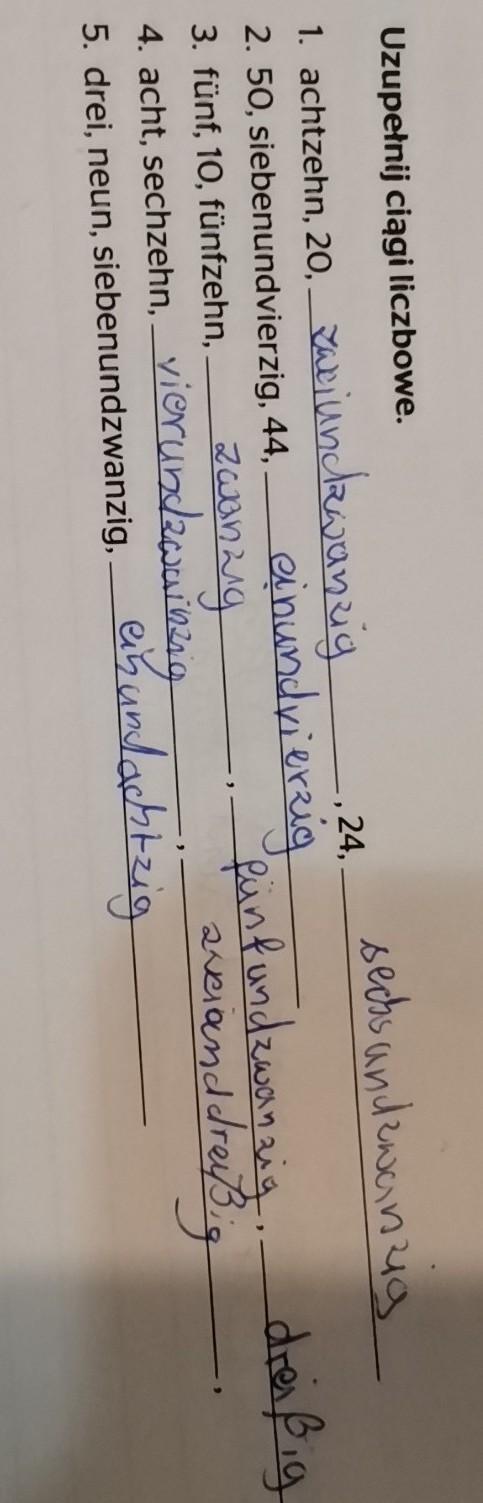 Uzupełnij ciągi liczbowe.
1. achtzehn, 20, zweiundzwanzig, 24, sechsundzwanzig
2. 50, siebenundvierzig, 44, einundvierzig
3. fünf, 10, fünfzehn, zwanzig, fünfundzwanzig, dreißig
4. acht, sechzehn, vierundzwainzig, zweianddreißig,
5. drei, neun, siebenundzwanzig, einundachtzig